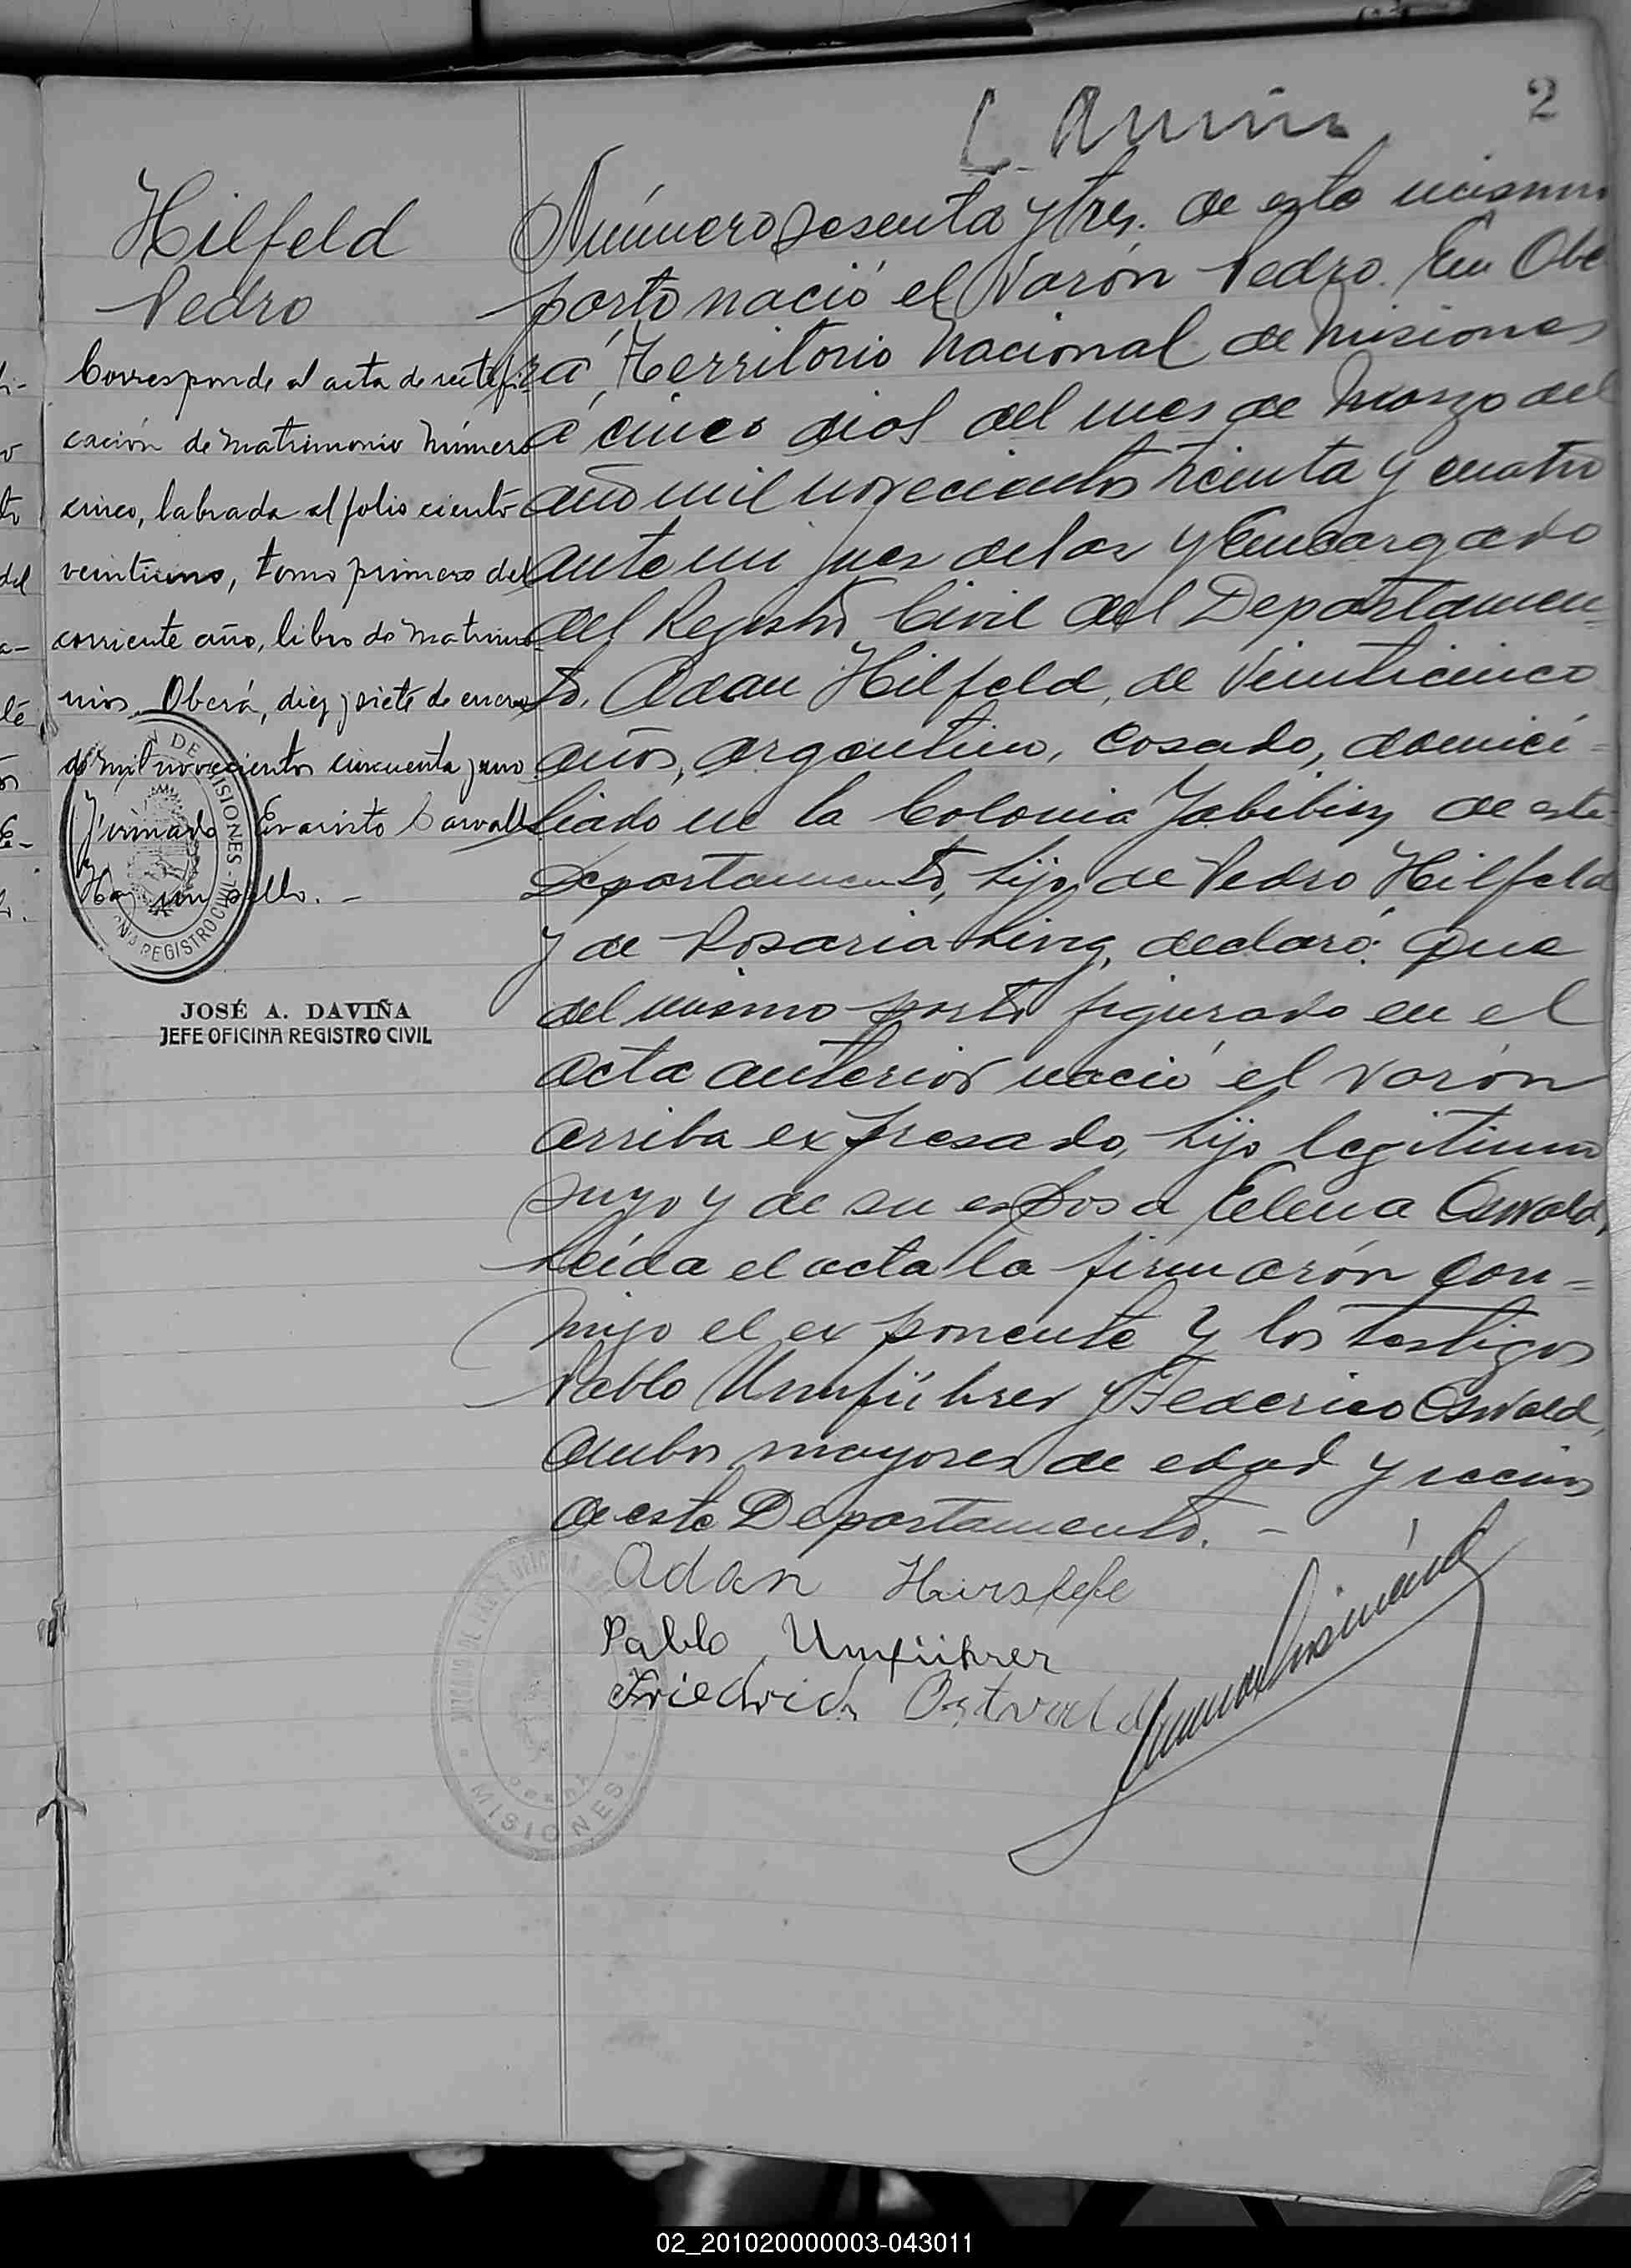 2
Hilfeld
Pedro
Corresponde al acta de rectifi-
cación de matrimonio número
cinco, labrada al folio ciento
veintiuno, tomo primero del
corriente año, libro de matrimo-
nios. Oberá, diez y siete de enero
de mil novecientos cincuenta y uno
Firmado Evaristo Carvallo
Hay un sello. -
JOSÉ A. DAVIÑA
JEFE OFICINA REGISTRO CIVIL
Número sesenta y tres. de este mismo
parto nació el Varón Pedro. En Obe
rá Territorio Nacional de Misiones
á cinco dias del mes de Marzo del
año mil novecientos treinta y cuatro
ante mi Juez de Paz y Encargado
del Registro Civil del Departamen-
to, Adan Hilfeld, de veinticinco
años, argentino, casado, domici-
liado en la Colonia Yabebiry de este
Departamento, hijo de Pedro Hilfeld
y de Rosaria Ling, declaró: Que
del mismo parto figurado en el
acta anterior nació el varón
arriba expresado, hijo legitimo
suyo y de su esposa Elena Oswald,
Leida el acta la firmarón con-
migo el exponente y los testigos
Pablo Umführer y Federico Oswald,
ambos mayores de edad y vecinos
de este Departamento. -
Adan
Pablo Umführer
Friedrich Ostwald
MISIONES
02_201020000003-043011